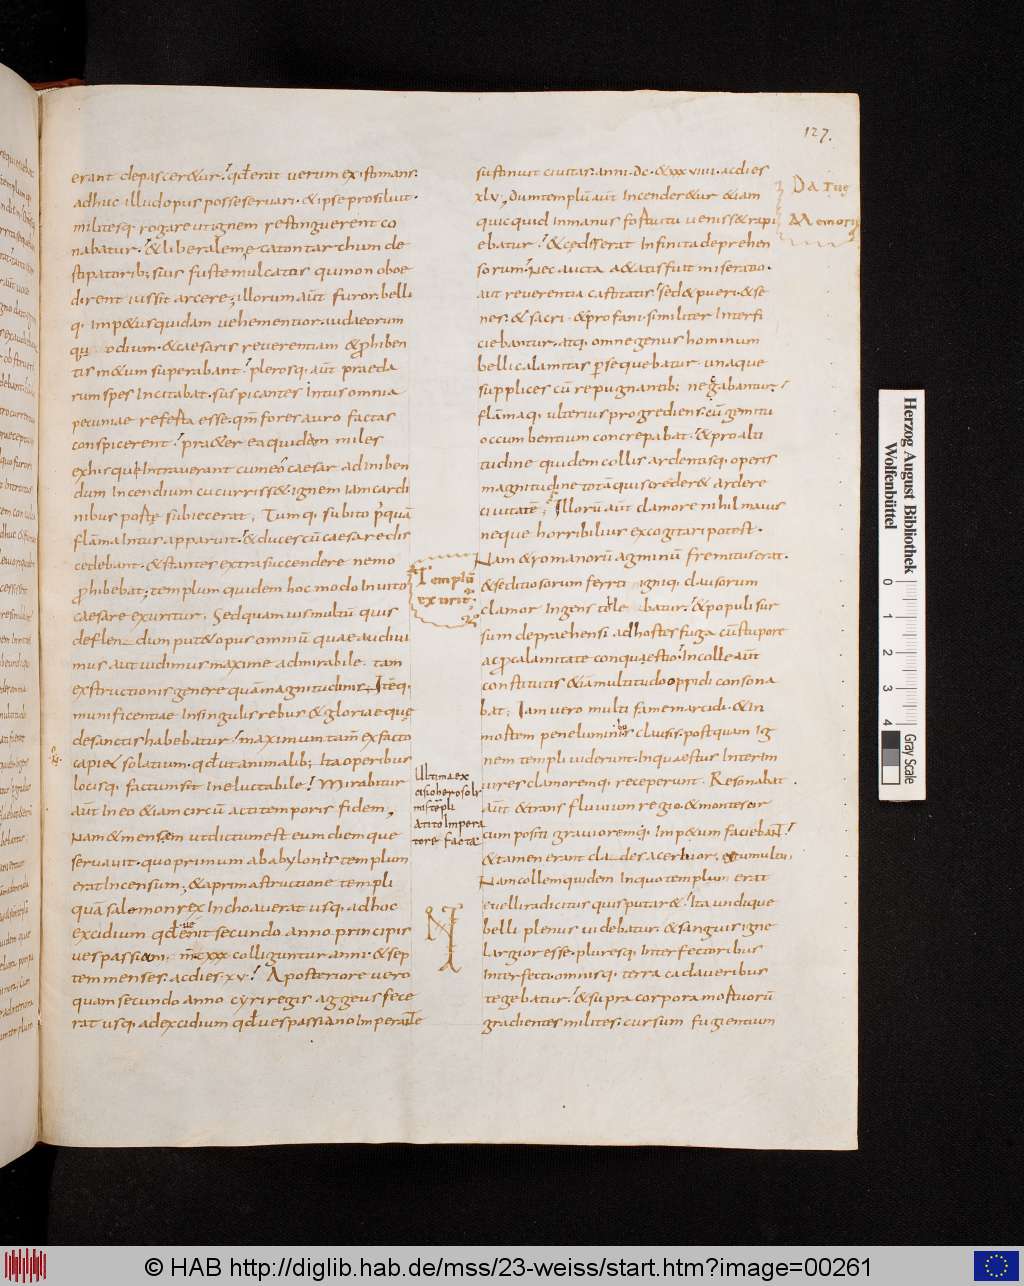 127.
erant depascer&ur. qđ erat uerum existimans.
adhuc illud opus posse seruari. & ipse prosiluit.
militesq. rogare ut ignem restinguerent co
nabatur. & liberalem
stipatorib; suis fuste mulcatis qui non oboe
dirent iussit arcere; illorum aūt furor. belli
q. imp&us quidam uehementior. iudaeorum
odium. & caesaris reuerentiam & ꝓhiben
tis m&um superabant. plerosq. aūt praeda
rum spes incitabat. suspicantes intus omnia
pecuniae referta esse. qm̄ fores auro factas
conspicerent. pra&er ea quidem miles
ex his qui intrauerant cum eo caesar ad inhiben
dum incendium cucurriss&. ignem iam cardi
nibus portę subiecerat. Tumq. subito
flāma intus apparuit. & duces cū caesare dis
cedebant. & stantes extra succendere nemo
ꝓhibebat; templum quidem hoc modo inuito
caesare exuritur. Sed quamuis multū quis
deflen dum put& opus omniū quae audiui
mus aut uidimus maxime admirabile. tam
exstructionis genere quā magnitudinis. Itēq.
munificentiae in singulis rebus & gloriae quę
de sanctis habebatur. maximum tam̄ ex facto
capiet solatium. qđ ut animalib; ita operibus
locisq. factum sit ineluctabile. Mirabitur
aūt in eo & iam circū acti temporis fidem.
Nam & mensem ut dictum est eum diemque
seruauit. quo primum a babylonis templum
erat incensum; & a prima structione templi
quā salomon rex inchoauerat usq. ad hoc
excidium qđ euenit secundo anno principis
uespasiani. colliguntur anni. & sep
tem menses. ac dies. xv. A posteriore uero
quam secundo anno cyri regis aggeus fece
rat usq. ad excidium qđ uespassiano imperante
Templū exurit
Ultima ex
cisio hierosoli
mis tēpli
a tito impera
tore facta
sustinuit ciuitas. anni. dc. & xxxviiii. ac dies
xlv. Dum templū aūt incender&ur & iam
quicquid in manus fortuitu ueniss& rapi
ebatur. & cędes erat infinita deprehen
sorum. Nec aucta a&atis fuit miseratio.
aut reuerentia castitatis. sed & pueri. & se
nes. & sacri. & profani. similiter interfi
ciebantur. atq. omne genus hominum
belli calamitas ꝑsequebatur. unaque
supplices cū repugnantib; negabantur.
flāmaq. ulterius progrediens. cū gemitu
occumbentium concrepabat. & pro alti
tudine quidem collis ardentisq. operis
magnitudine totā quis creder& ardere
ciuitatē; Illorū aūt clamore nihil maius
neque horribilius excogitari potest.
Nam & romanorū agminū fremitus erat.
& seditiosorum ferro igniq. clausorum
clamor ingens tolle batur. & populi sur
sum depraehensi. ad hostes fuga cū stupore
ac ꝓ calamitate conquaestio. In colle aūt
constitutis & iā multitudo oppidi consona
bat; Iam uero multi fame marcidi. & in
mortem pene luminibus clausis. postquam ig
nem templi uiderunt. in quaestus interim
uires clamoremq. receperunt. Resonabat
aūt & trans fluuium regio. & montes or
cum positi grauioremq. imp&um faciebant.
& tamen erant cla des acerbior. tumultu.
Nam collem quidem in quo templum erat
euelli radicitus quis putar&. ita undique
belli plenus uidebatur. & sanguis igne
largior esse. pluresq. interfectoribus
interfecti. omnisq. terra cadaueribus
tegebatur. & supra corpora mortuorū
gradientes milites. cursum fugientium
Datus
Memoriȩ
Herzog August Bibliothek
Wolfenbüttel
0 1 2 3 4
Gray Scale
© HAB http://diglib.hab.de/mss/23-weiss/start.htm?image=00261